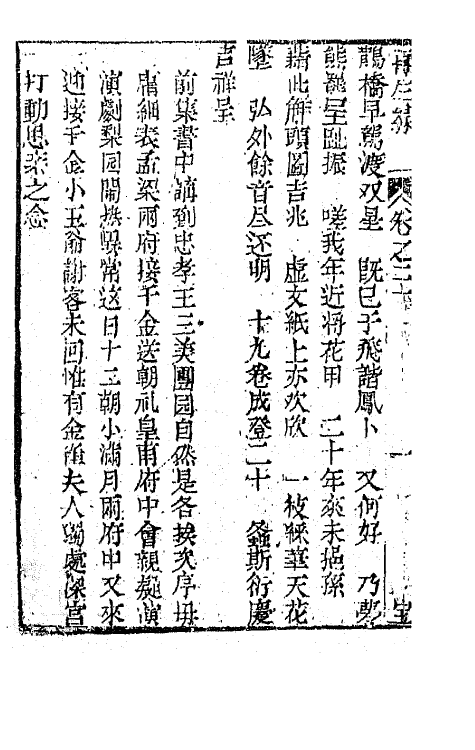 再生緣 卷之二十 一 宝
鵲橋早駕渡双星 旣已于飛諧鳳卜 又何好 乃夢
熊羆呈瓞振 嗟我年近將花甲 二十年來未抱孫
藉此解頭圖吉兆 虛文紙上亦欢欣 一枝綵筆天花
墜 弘外餘音尽还明 十九卷成登二十 螽斯衍慶
吉祥呈
前集書中謪到忠孝王三美團园自然是各挨次序毋
庸細表孟梁兩府接千金送朝礼皇甫府中會親疑演
演劇梨园閙攘異常这日十三朝小滿月兩府中又來
迎接千金小王爺謝客未回惟有金雀夫人獨處深宫
打動思亲之念